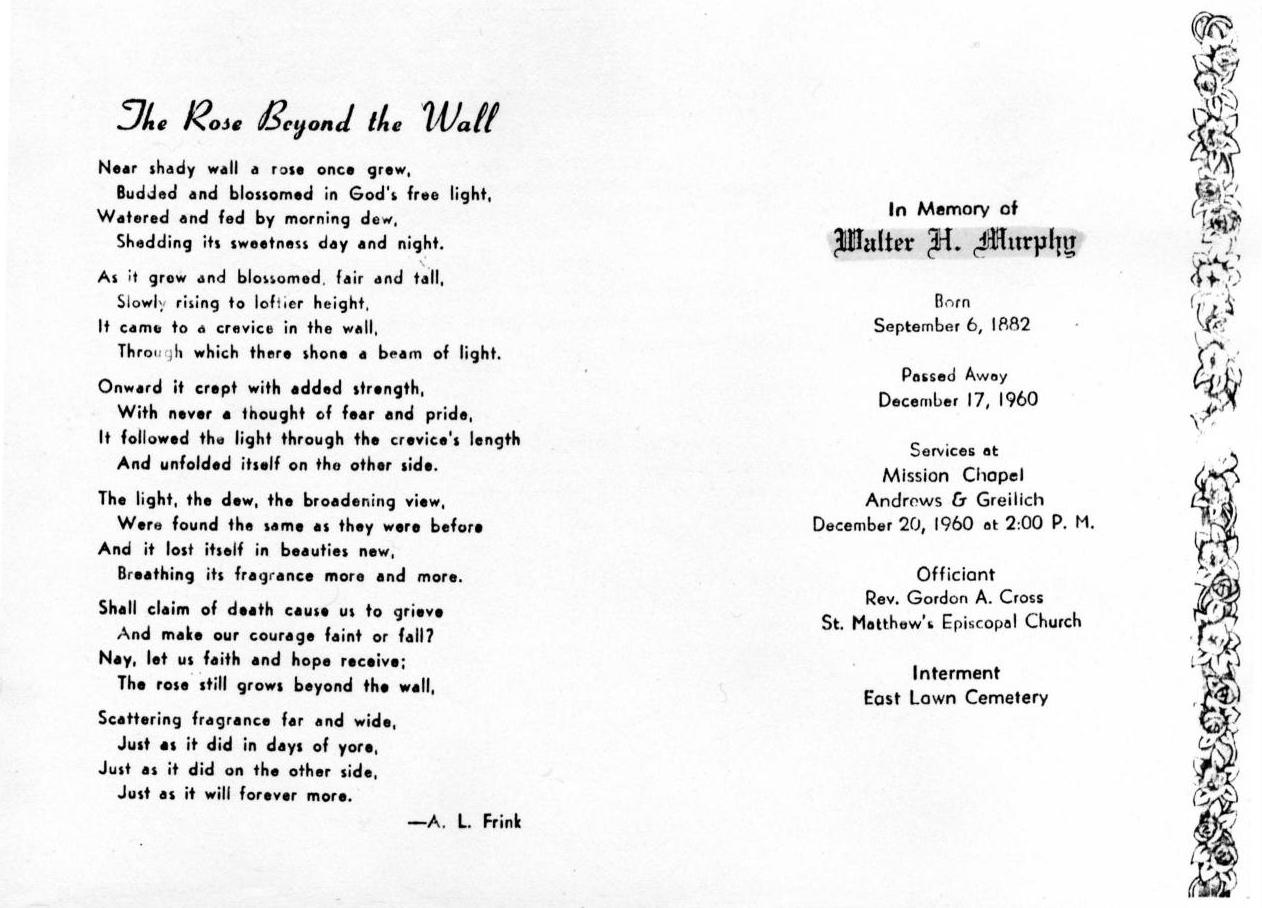 The Rose Beyond the Wall
Near shady wall a rose once grew,
Budded and blossomed in God's free light,
Watered and fed by morning dew,
Shedding its sweetness day and night.
As it grew and blossomed, fair and tall,
Slowly rising to loftier height,
It came to a crevice in the wall,
Through which there shone a beam of light.
Onward it crept with added strength,
With never a thought of fear and pride,
It followed the light through the crevice's length
And unfolded itself on the other side.
The light, the dew, the broadening view,
Were found the same as they were before
And it lost itself in beauties new,
Breathing its fragrance more and more.
Shall claim of death cause us to grieve
And make our courage faint or fall?
Nay, let us faith and hope receive;
The rose still grows beyond the wall,
Scattering fragrance far and wide,
Just as it did in days of yore,
Just as it did on the other side,
Just as it will forever more.
—A. L. Frink
In Memory of
Walter H. Murphy
Born
September 6, 1882
Passed Away
December 17, 1960
Services at
Mission Chapel
Andrews & Greilich
December 20, 1960 at 2:00 P. M.
Officiant
Rev. Gordon A. Cross
St. Matthew's Episcopal Church
Interment
East Lawn Cemetery